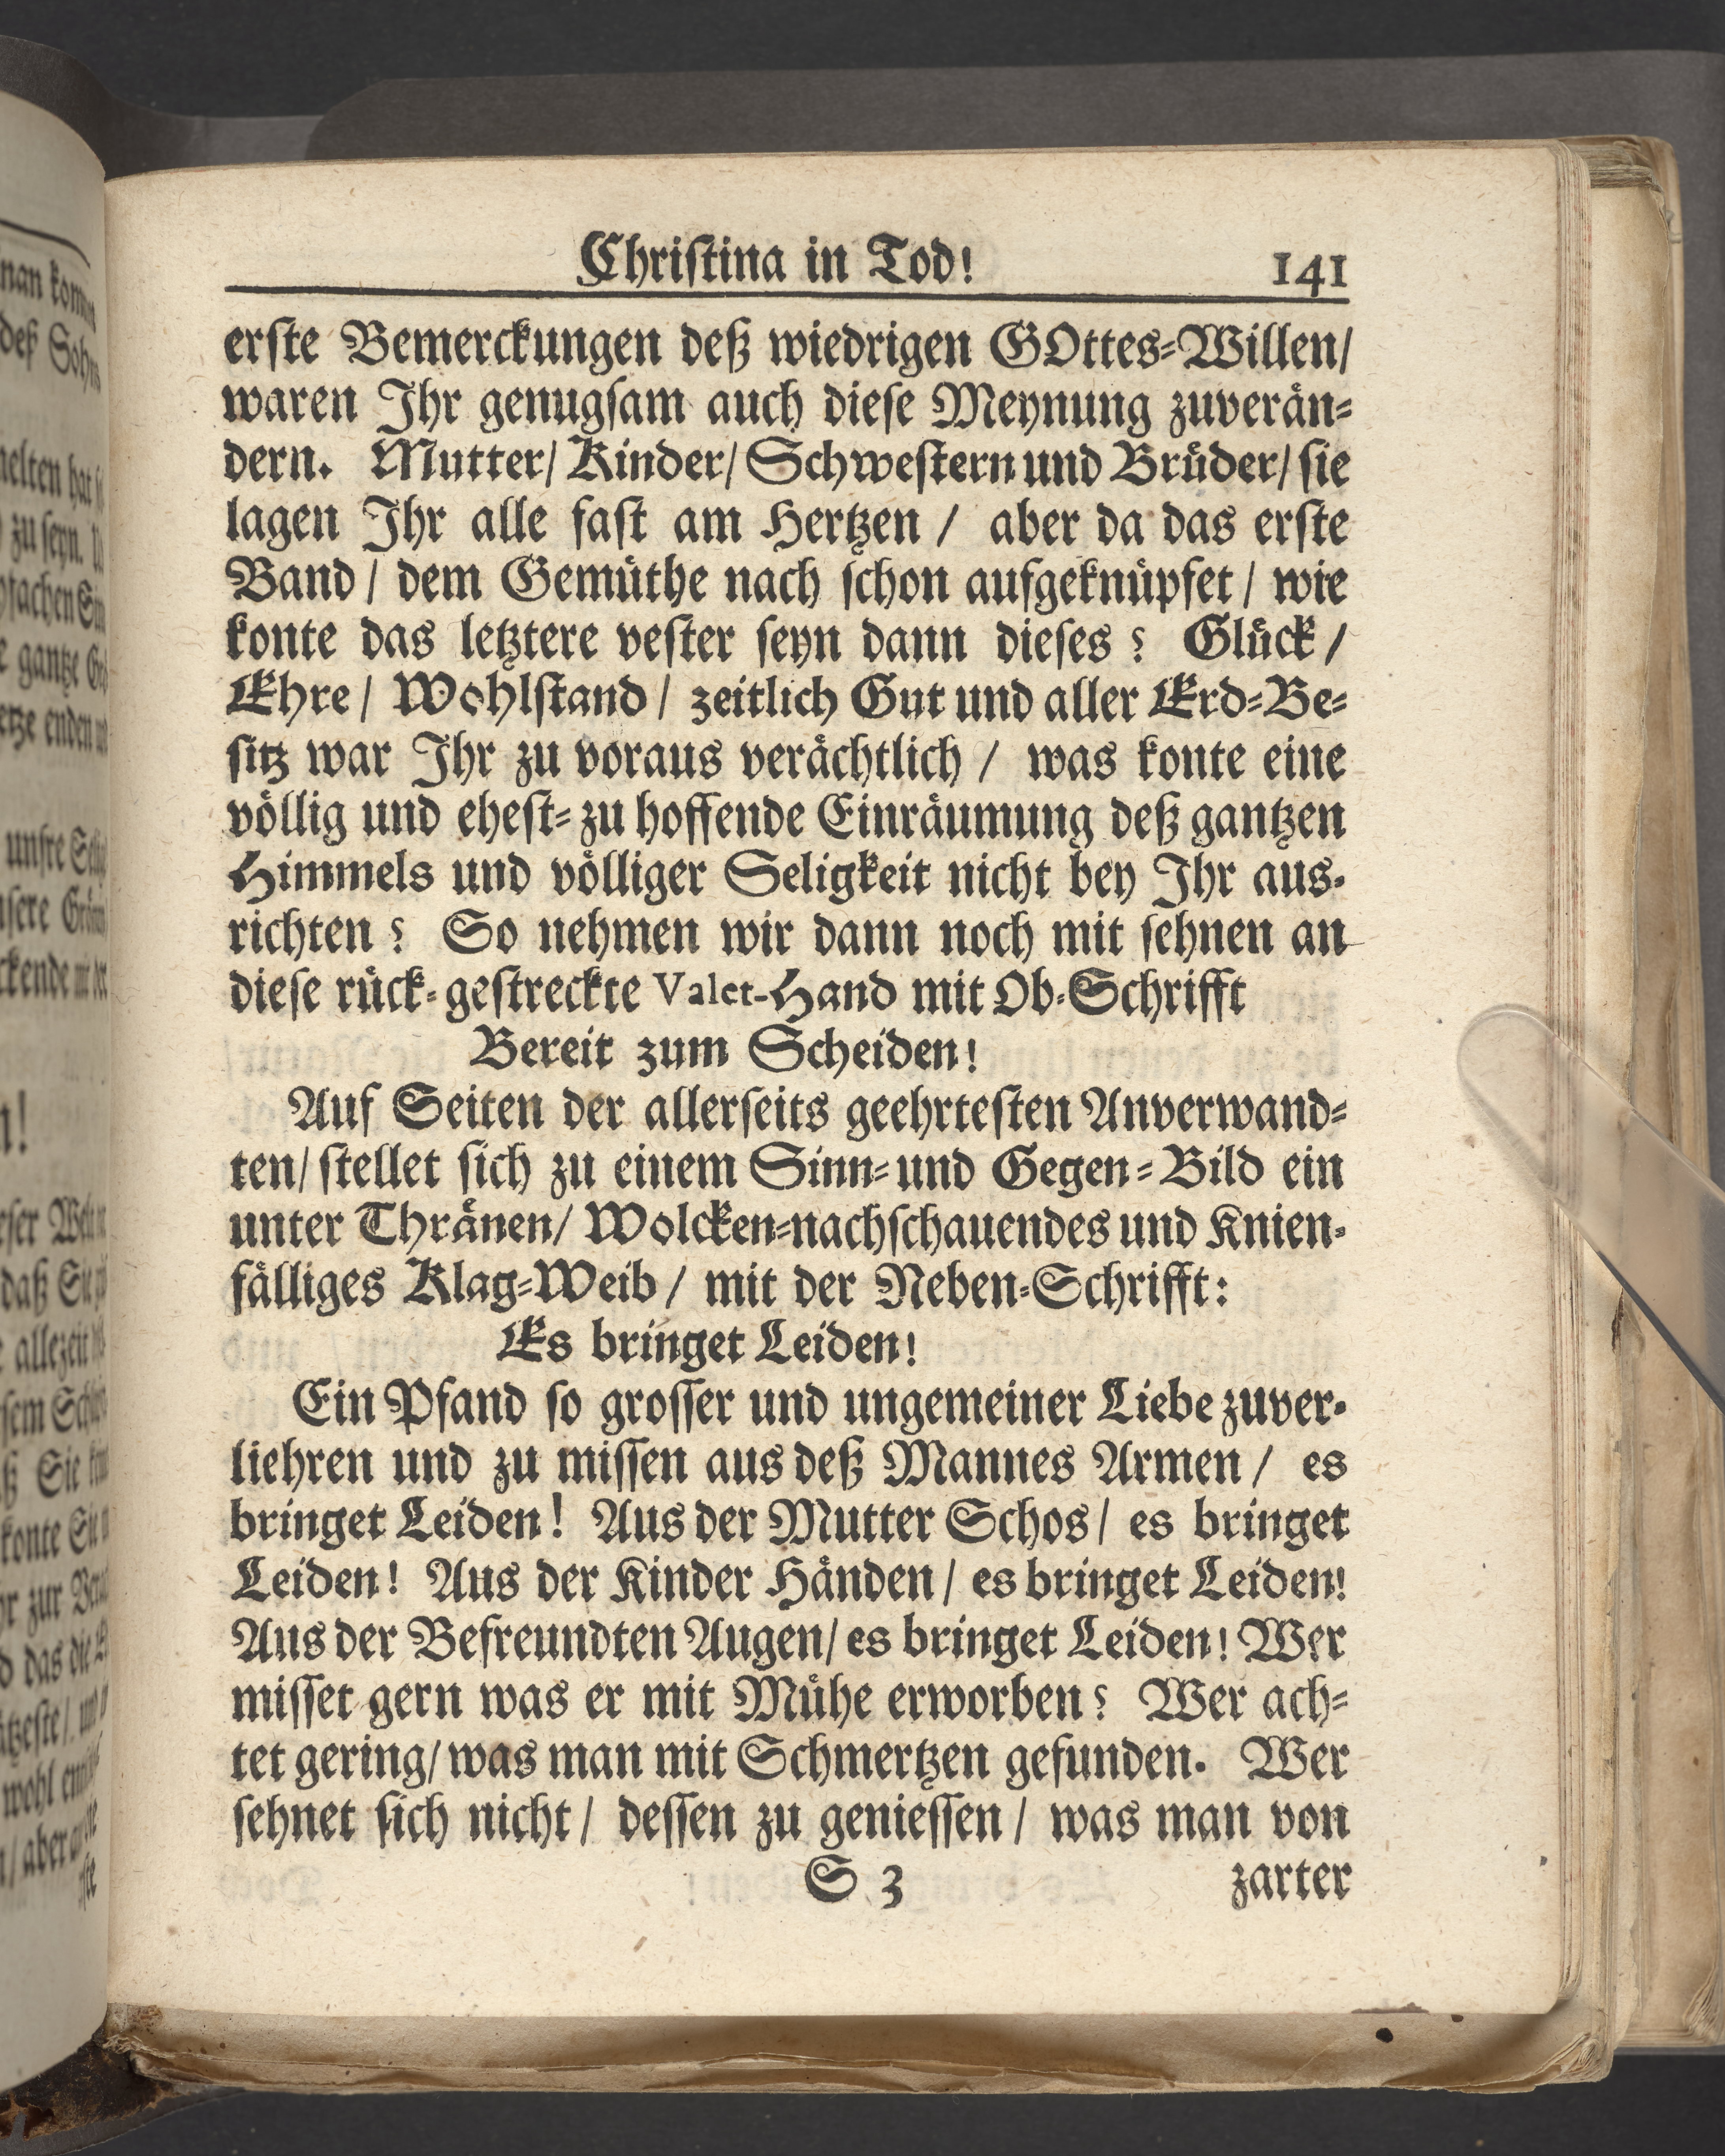 Christina in Tod!
141
erste Bemerckungen deß wiedrigen GOttes-Willen/
waren Ihr genugsam auch diese Meynung zuverän-
dern. Mutter/ Kinder/ Schwestern und Brüder/ sie
lagen Ihr alle fast am Hertzen / aber da das erste
Band / dem Gemüthe nach schon aufgeknüpfet / wie
konte das letztere vester seyn dann dieses? Glück /
Ehre / Wohlstand / zeitlich Gut und aller Erd-Be-
sitz war Ihr zu voraus verächtlich / was konte eine
völlig und ehest-zu hoffende Einräumung deß gantzen
Himmels und völliger Seligkeit nicht bey Ihr aus-
richten? So nehmen wir dann noch mit sehnen an
diese rück-gestreckte Valet-Hand mit Ob-Schrifft
Bereit zum Scheiden!
Auf Seiten der allerseits geehrtesten Anverwand-
ten/ stellet sich zu einem Sinn-und Gegen-Bild ein
unter Thränen/ Wolcken-nachschauendes und Knien-
fälliges Klag-Weib / mit der Neben-Schrifft:
Es bringet Leiden!
Ein Pfand so grosser und ungemeiner Liebe zuver-
liehren und zu missen aus deß Mannes Armen / es
bringet Leiden! Aus der Mutter Schos / es bringet
Leiden! Aus der Kinder Händen / es bringet Leiden!
Aus der Befreundten Augen/ es bringet Leiden! Wer
misset gern was er mit Mühe erworben? Wer ach-
tet gering/ was man mit Schmertzen gefunden. Wer
sehnet sich nicht / dessen zu geniessen / was man von
S 3
zarter